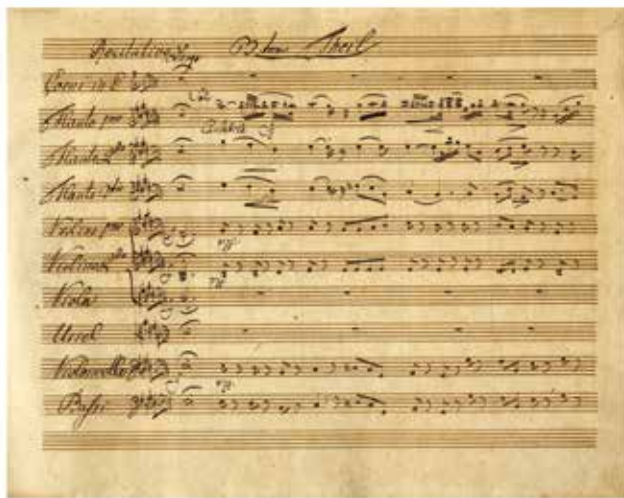 Recitativo Largo 3ter Theil
Corni in E
Flauto pmo
Solo
Flauto 2do
Flauto 3zo
Violino pmo
Violino 2do
Viola
Uriel
Violoncello
Bassi